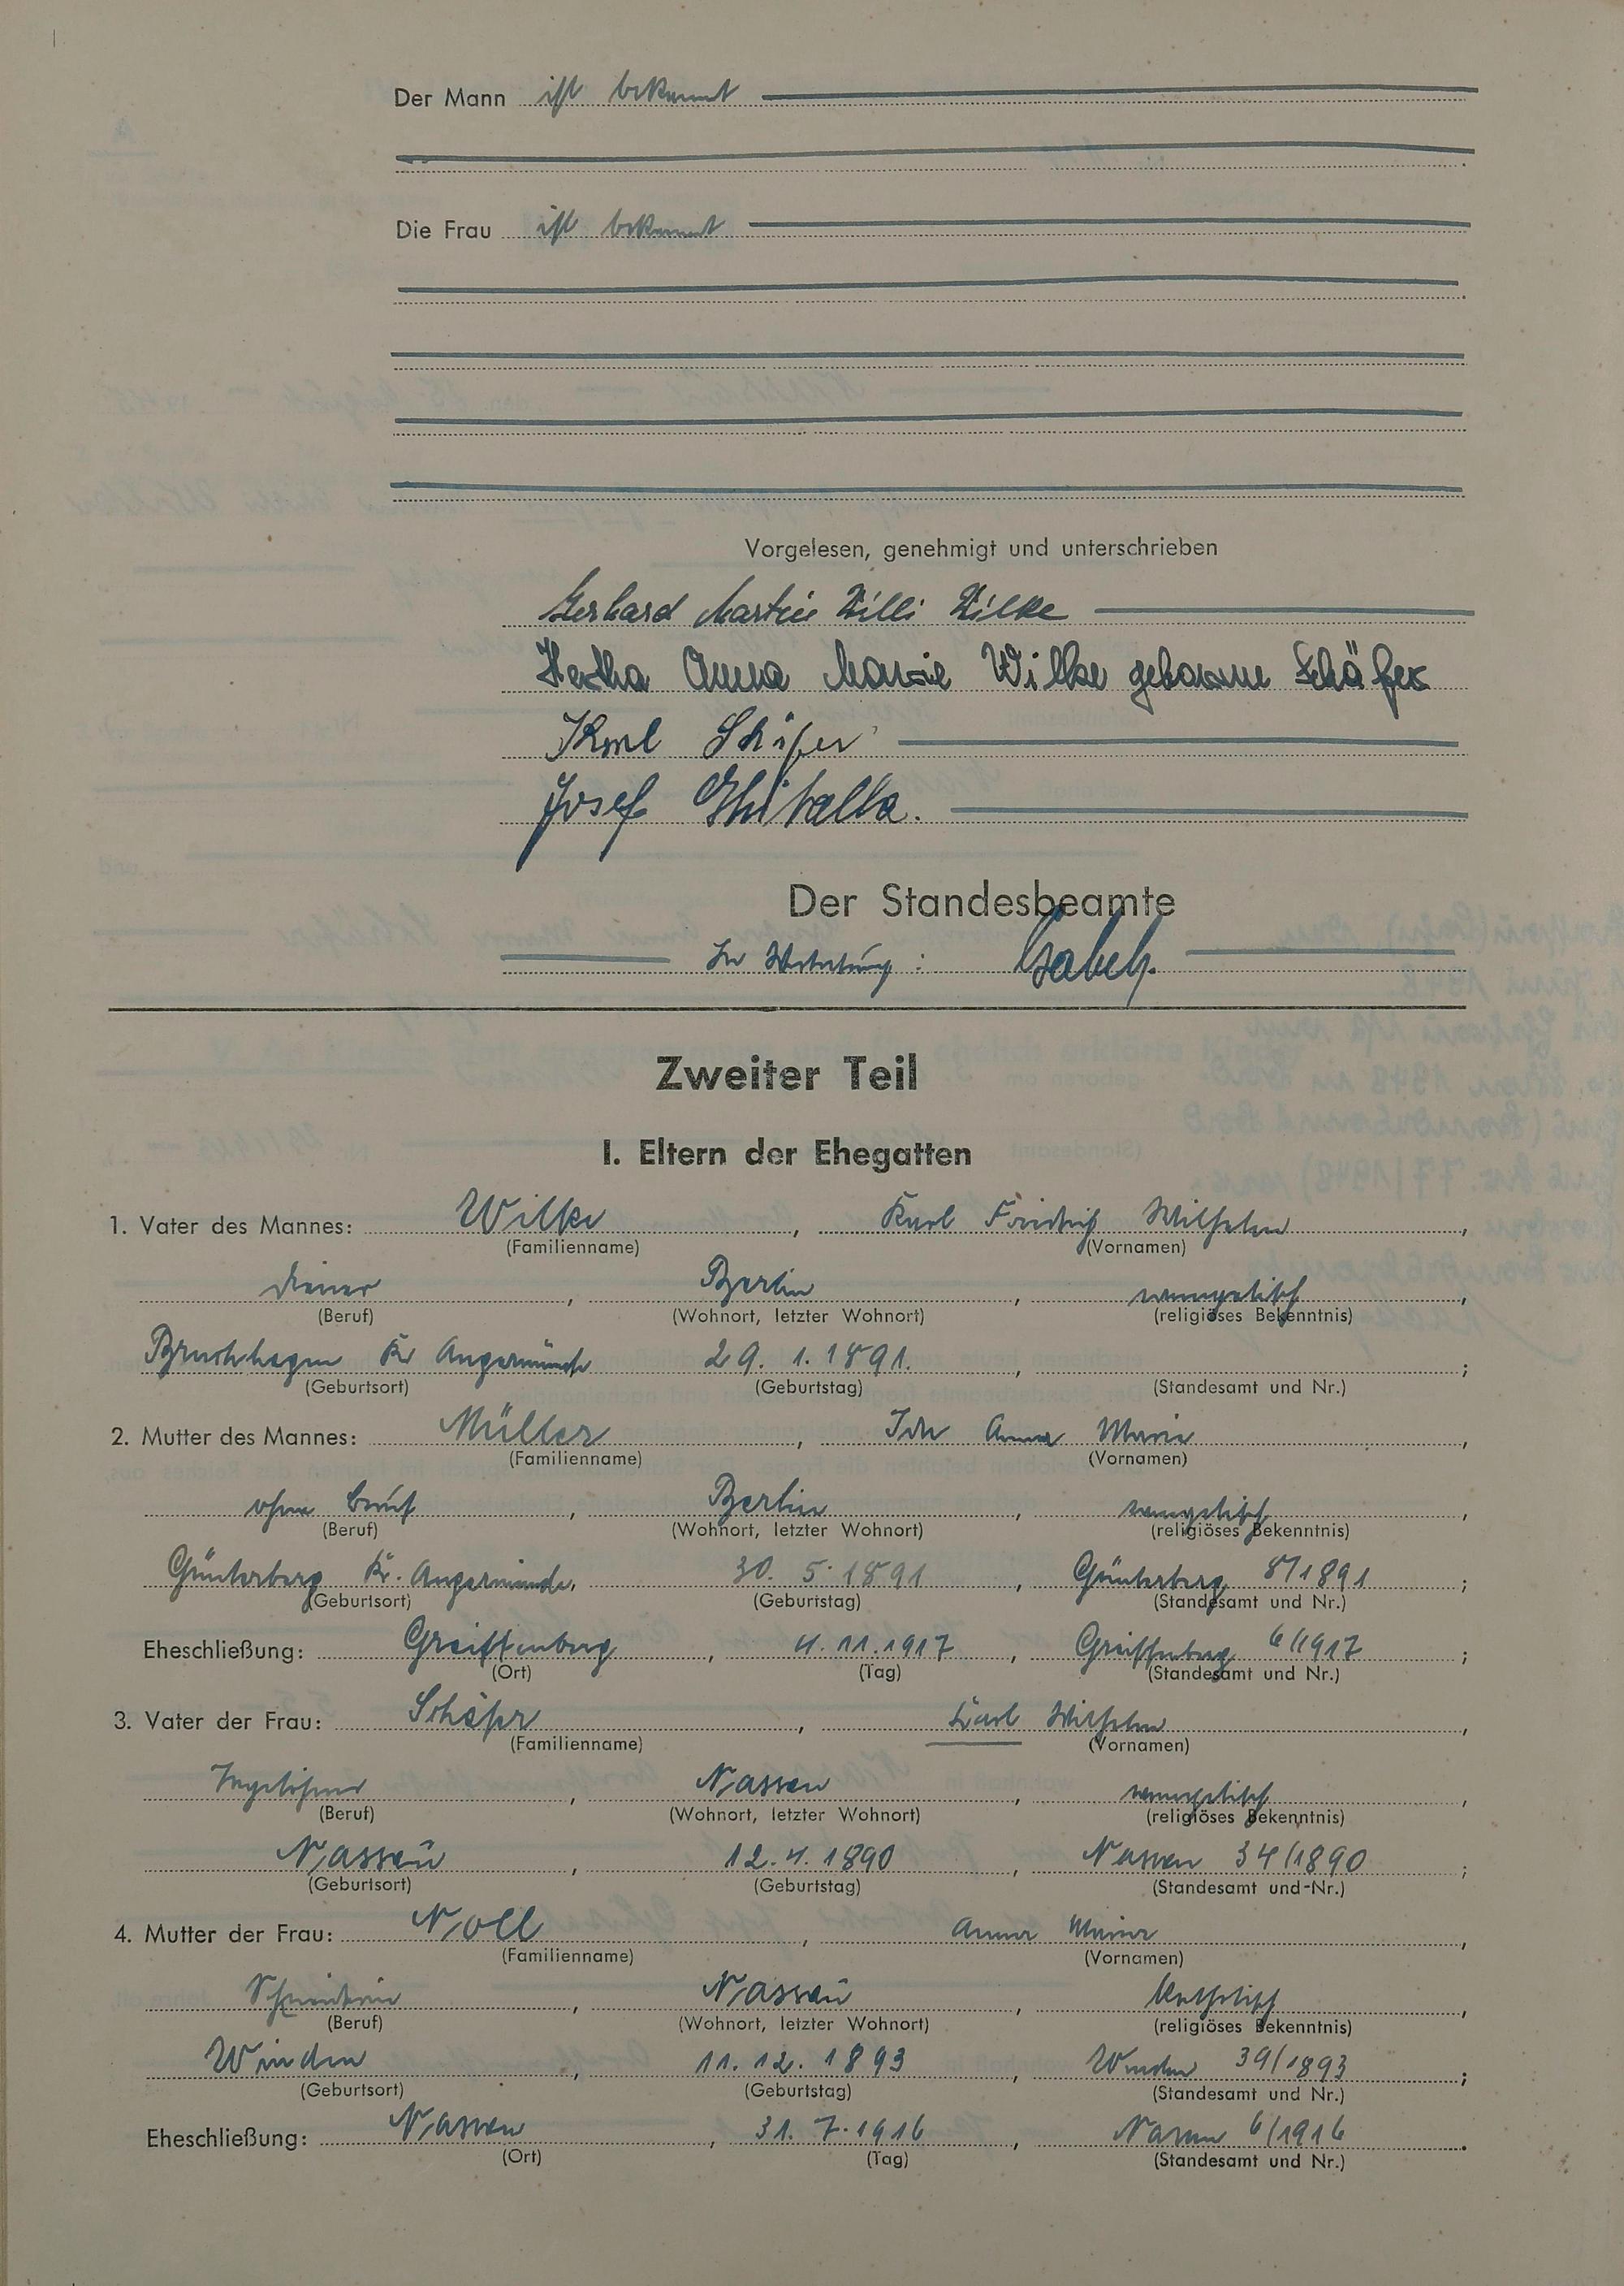 Der Mann ist bekannt
Die Frau ist bekannt
Vorgelesen, genehmigt und unterschrieben
Gerhard Martin Willi Wilke
Hertha Anna Marie Wilke geborene Schäfer
Karl Schäfer
Josef
Der Standesbeamte
In Vertretung: Gabel
Zweiter Teil
I. Eltern der Ehegatten
1. Vater des Mannes: Wilke, Karl Friedrich Wilhelm,
(Familienname) (Vornamen)
Diener, Berlin, evangelisch,
(Beruf) (Wohnort, letzter Wohnort) (religiöses Bekenntnis)
Bruchhagen Kr Angermünde 29. 1. 1891. , ;
(Geburtsort) (Geburtstag) (Standesamt und Nr.)
2. Mutter des Mannes: Müller, Ida Anna Marie,
(Familienname) (Vornamen)
ohne Beruf, Berlin, evangelisch,
(Beruf) (Wohnort, letzter Wohnort) (religiöses Bekenntnis)
Günterberg Kr. Angermünde, 30. 5. 1891, Günterberg 8/1891;
(Geburtsort) (Geburtstag) (Standesamt und Nr.)
Eheschließung: Greiffenberg, 4. 11. 1917, Greiffenberg 6/1917;
(Ort) (Tag) (Standesamt und Nr.)
3. Vater der Frau: Schäfer, Karl Wilhelm,
(Familienname) (Vornamen)
Tagelöhner, Nassau, evangelisch,
(Beruf) (Wohnort, letzter Wohnort) (religiöses Bekenntnis)
Nassau, 12. 4. 1890, Nassau 34/1890;
(Geburtsort) (Geburtstag) (Standesamt und Nr.)
4. Mutter der Frau: Noll, Anna Maria,
(Familienname) (Vornamen)
Schneiderin, Nassau, katholisch,
(Beruf) (Wohnort, letzter Wohnort) (religiöses Bekenntnis)
Winden, 11. 12. 1893, Winden 39/1893;
(Geburtsort) (Geburtstag) (Standesamt und Nr.)
Eheschließung: Nassau, 31. 7. 1916, Nassau 6/1916.
(Ort) (Tag) (Standesamt und Nr.)